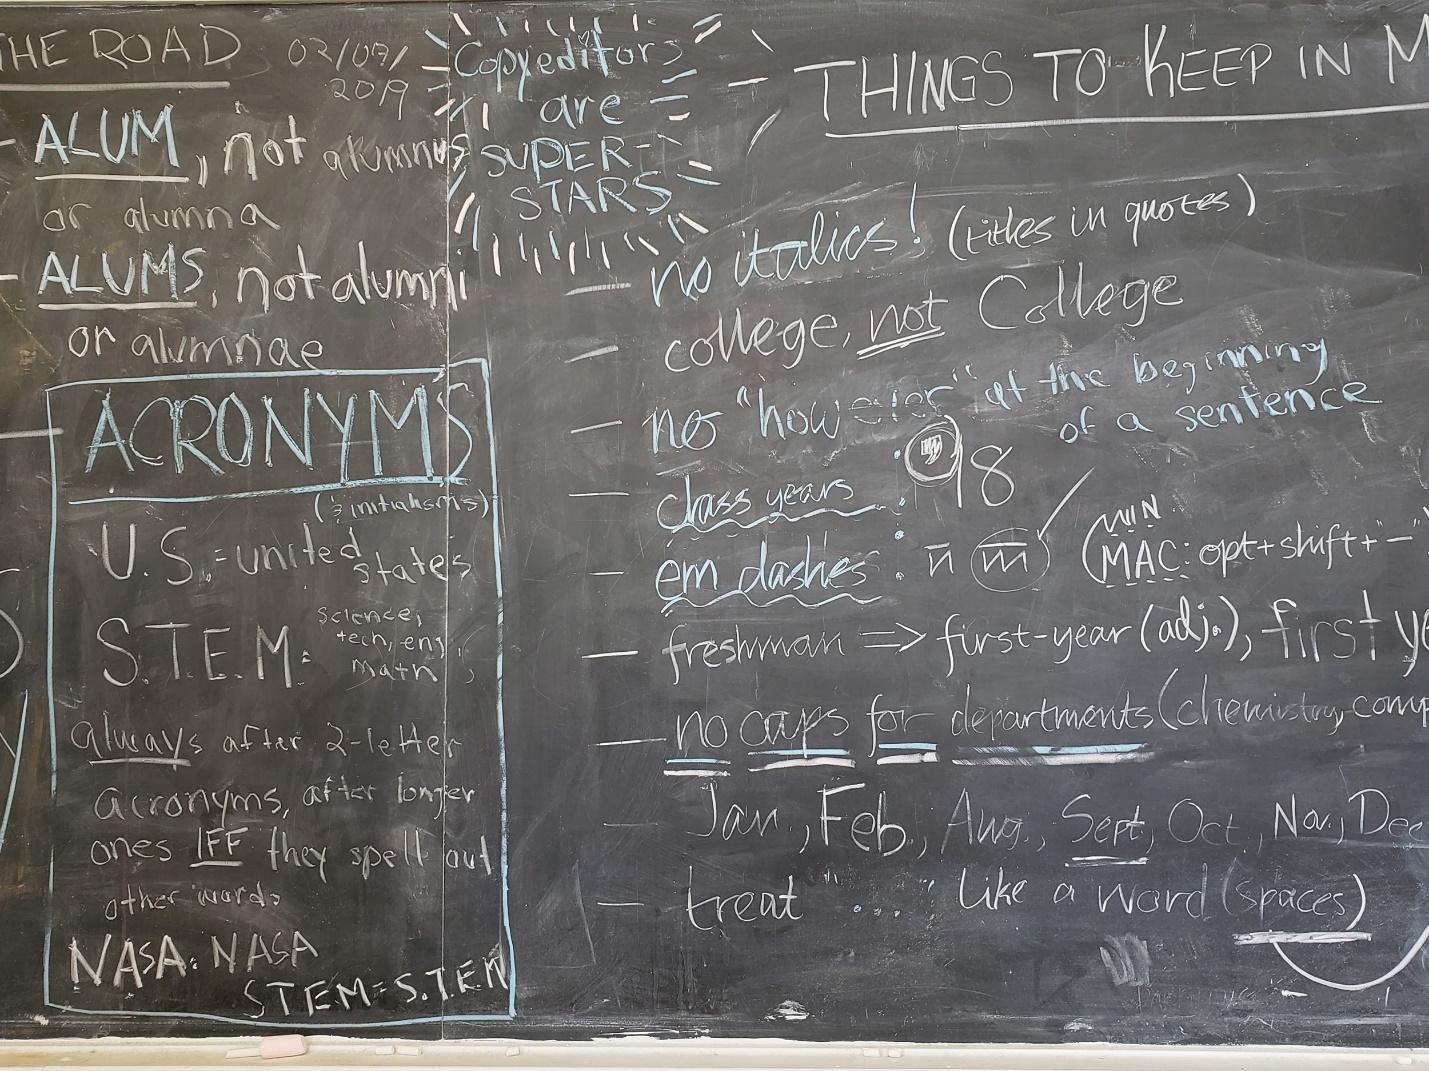 THE ROAD
02/07/
2019
- ALUM, not alumnus
or alumna
- ALUMS, not alumni
or alumnae
ACRONYMS
(& initialisms)
U.S. = united states
S.T.E.M: science, tech, eng, math
always after 2-letter
acronyms, after longer
ones IFF they spell out
other words
NASA: NASA
STEM = S.T.E.M
Copyeditors
are
SUPER-
STARS
- THINGS TO KEEP IN M
— no italics! (titles in quotes)
— college, not College
— no "however" at the beginning
of a sentence
— class years: '98
— em dashes: n m (MAC: opt+shift+"-"
WIN
— freshman => first-year (adj.), first ye
— no caps for departments (chemistry, comp
— Jan., Feb., Aug., Sept., Oct., Nov., Dec
— treat "..." like a word (spaces)